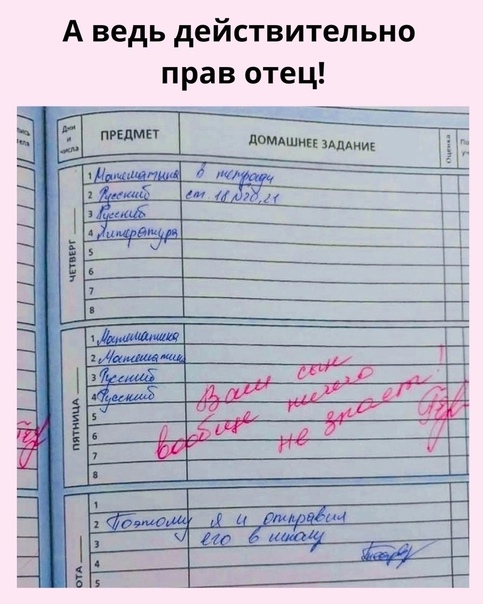 А ведь действительно
прав отец!
Дни и числа
ПРЕДМЕТ
ДОМАШНЕЕ ЗАДАНИЕ
Оценка
ЧЕТВЕРГ
1 Математика в тетради
2 Русский ст. 18 №20,21
3 Русский
4 Литература
5
6
7
8
ПЯТНИЦА
1 Математика
2 Математика
3 Русский
4 Русский
5
6
7
8
Ваш сын
вообще ничего
не знает!
1
2 Поэтому я и отправил
3 его в школу
4
5